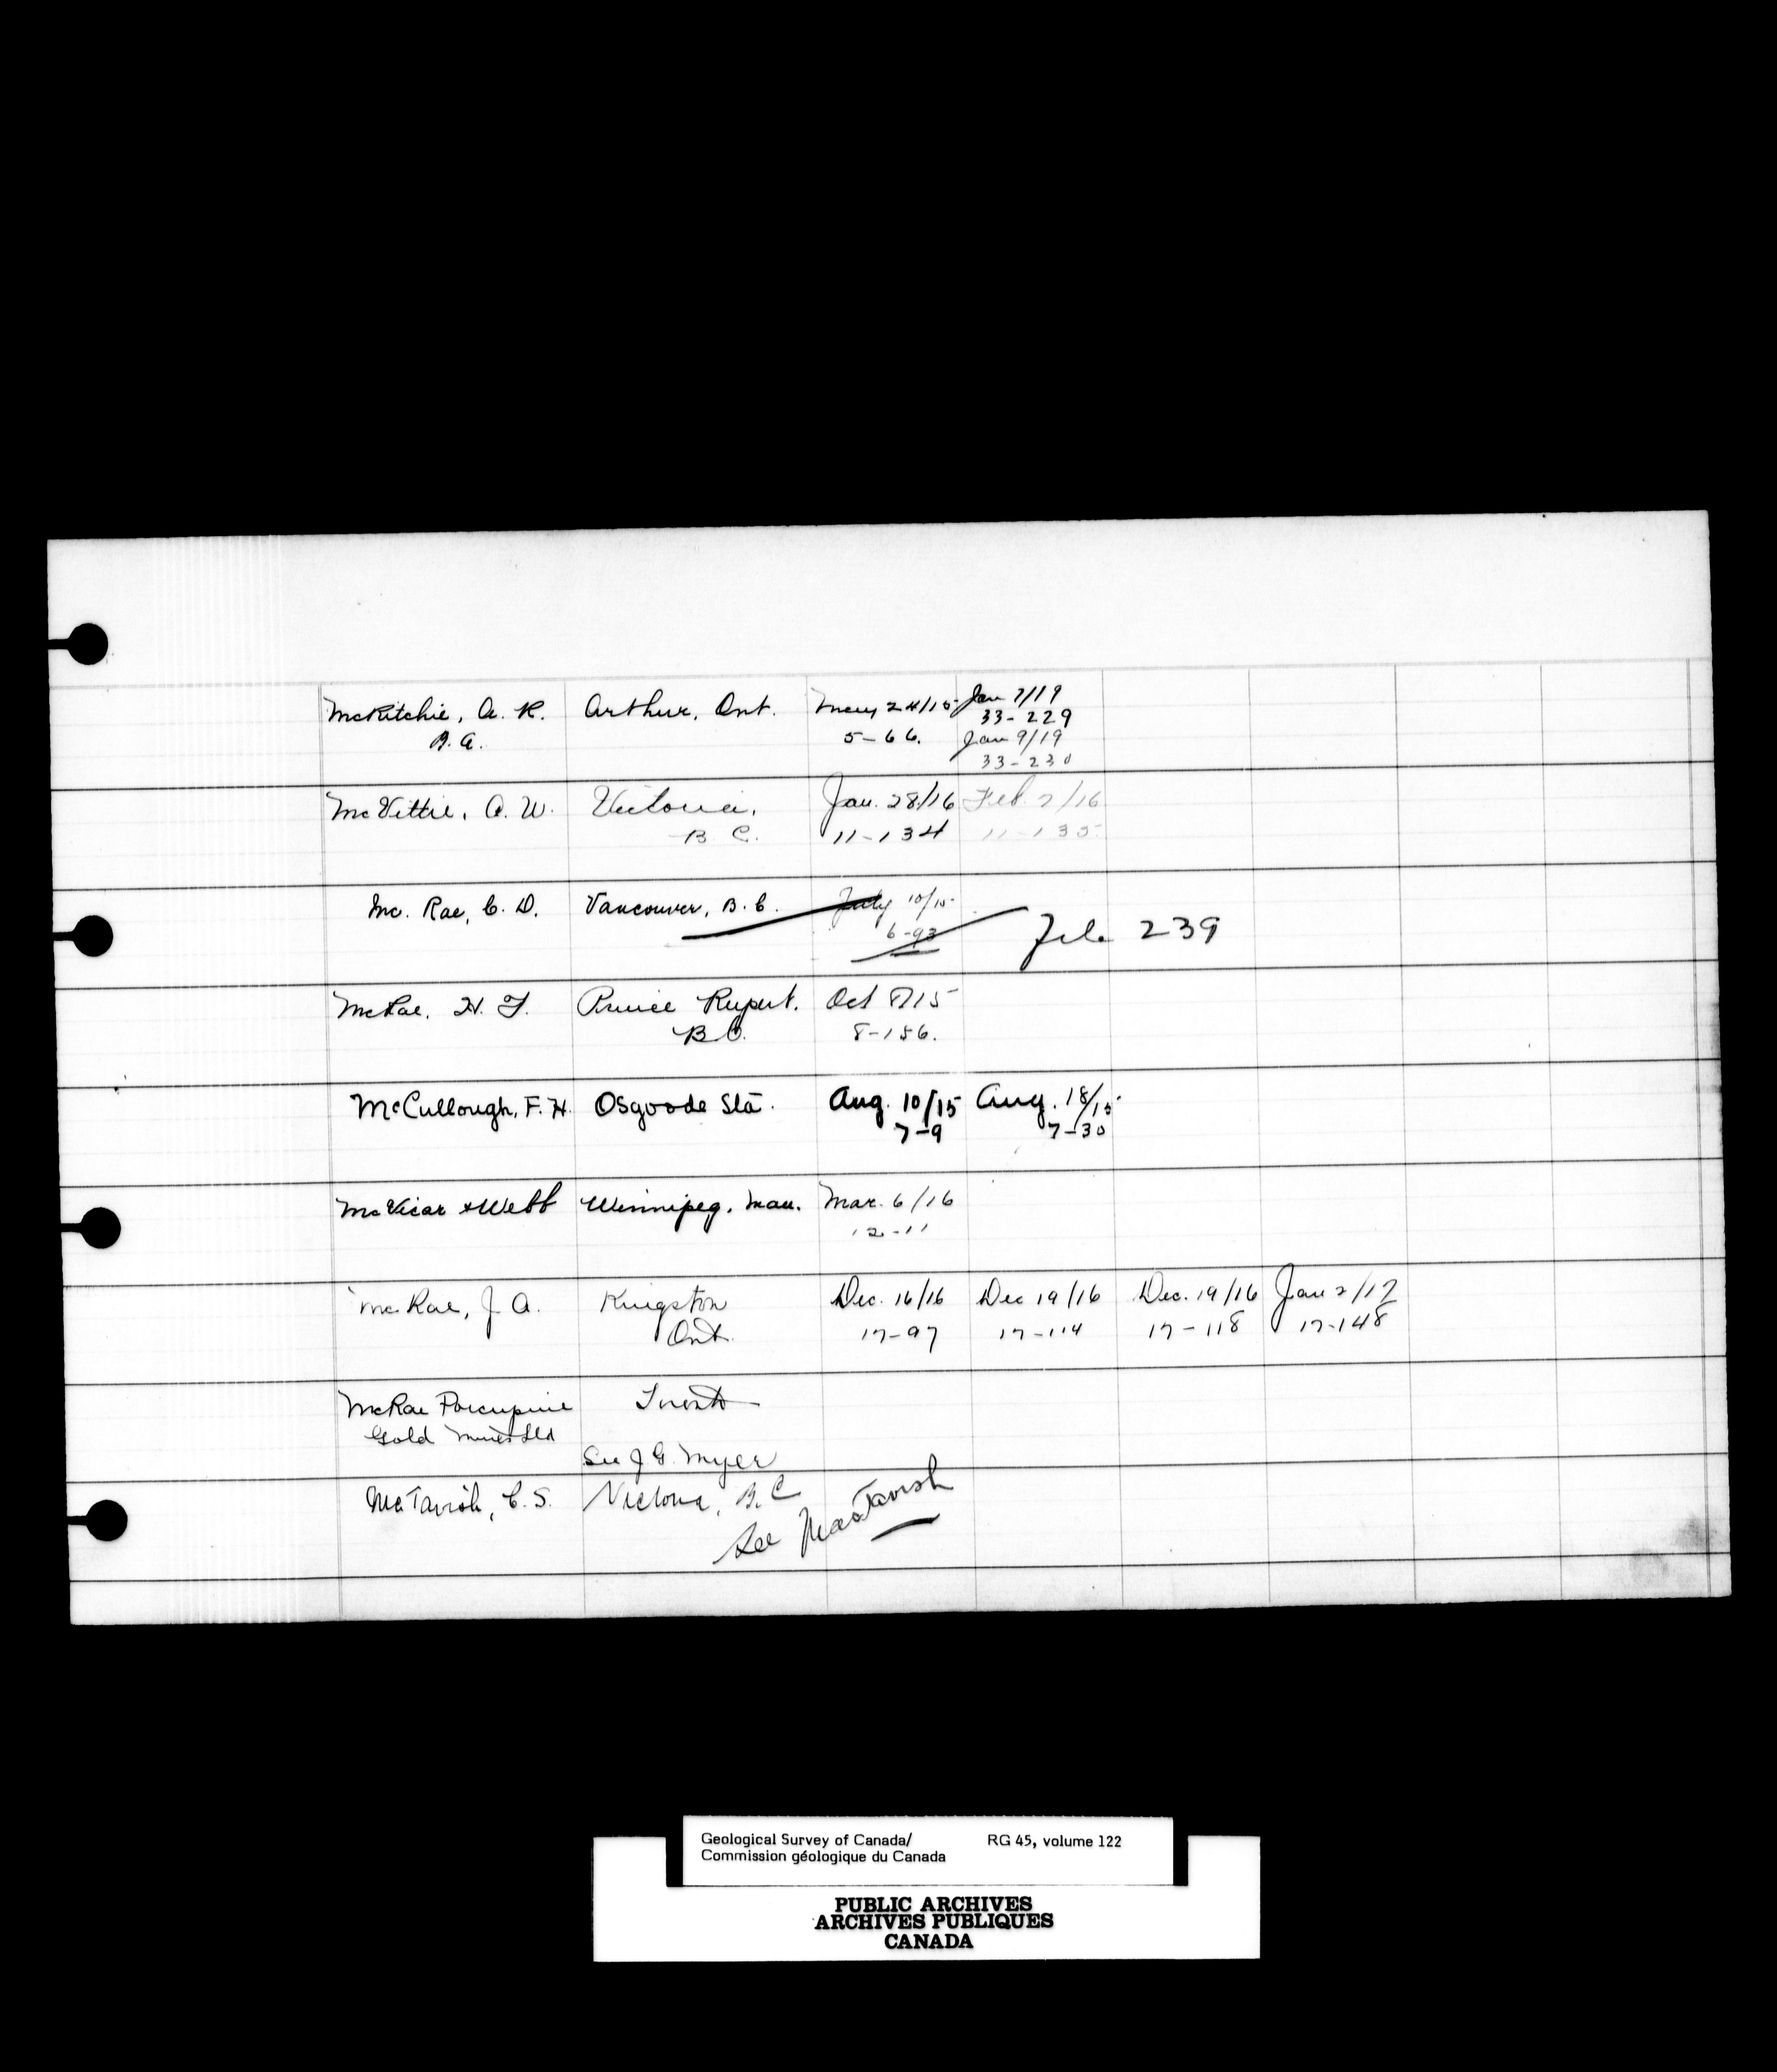 McRitchie, A. R. Arthur, Ont. May 24/15 Jan 7/19
B.A. 5-66. 33-229
Jan 9/19
33-230
McVittie, A. W. Victoria, Jan. 28/16 Feb. 2/16
B C. 11-134 11-135
Mc. Rae, C. D. Vancouver, B.C. July 10/15
6-93 File 239
McRae, H. F. Prince Rupert. Oct 8/15
B C. 8-156.
McCullough, F. H. Osgoode Sta. Aug. 10/15 Aug. 18/15
7-9 7-30
McVicar & Webb Winnipeg, Man. Mar. 6/16
12-11
McRae, J. A. Kingston Dec. 16/16 Dec 19/16 Dec. 19/16 Jan 2/17
Ont. 17-97 17-114 17-118 17-148
McRae Porcupine Toronto
Gold Mines Ltd
See J G. Myer
McTavish, C. S. Victoria, B.C
See MacTavish
Geological Survey of Canada/ RG 45, volume 122
Commission géologique du Canada
PUBLIC ARCHIVES
ARCHIVES PUBLIQUES
CANADA